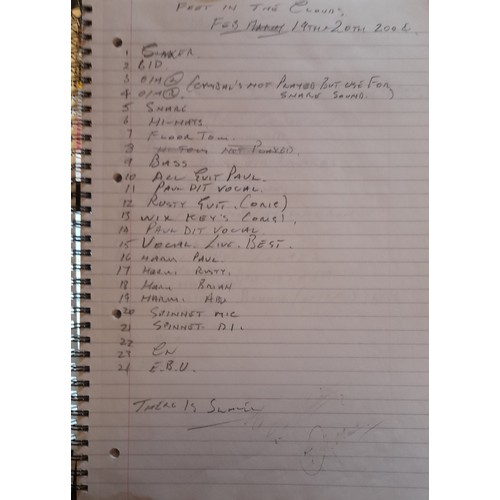 FEET IN THE CLOUDS
FEB 19TH + 20TH 2002
1 SHAKER
2 B/D
3 O/H (CYMBAL'S NOT PLAYED BUT USE FOR
4 O/H SNARE SOUND.)
5 SNARE
6 HI-HATS
7 FLOOR TOM
8 TOM NOT PLAYED.
9 BASS
10 ACC GUIT PAUL.
11 PAUL DIT VOCAL.
12 RUSTY GUIT. (ORIG)
13 WIX KEY'S (ORIG).
14 PAUL DIT VOCAL
15 VOCAL. LIVE. BEST.
16 HARM PAUL.
17 HARM. RUSTY.
18 HARM BRIAN
19 HARM. ABE
20 SPINNET MIC
21 SPINNET D.I.
22
23
24 E.B.U.
THERE IS